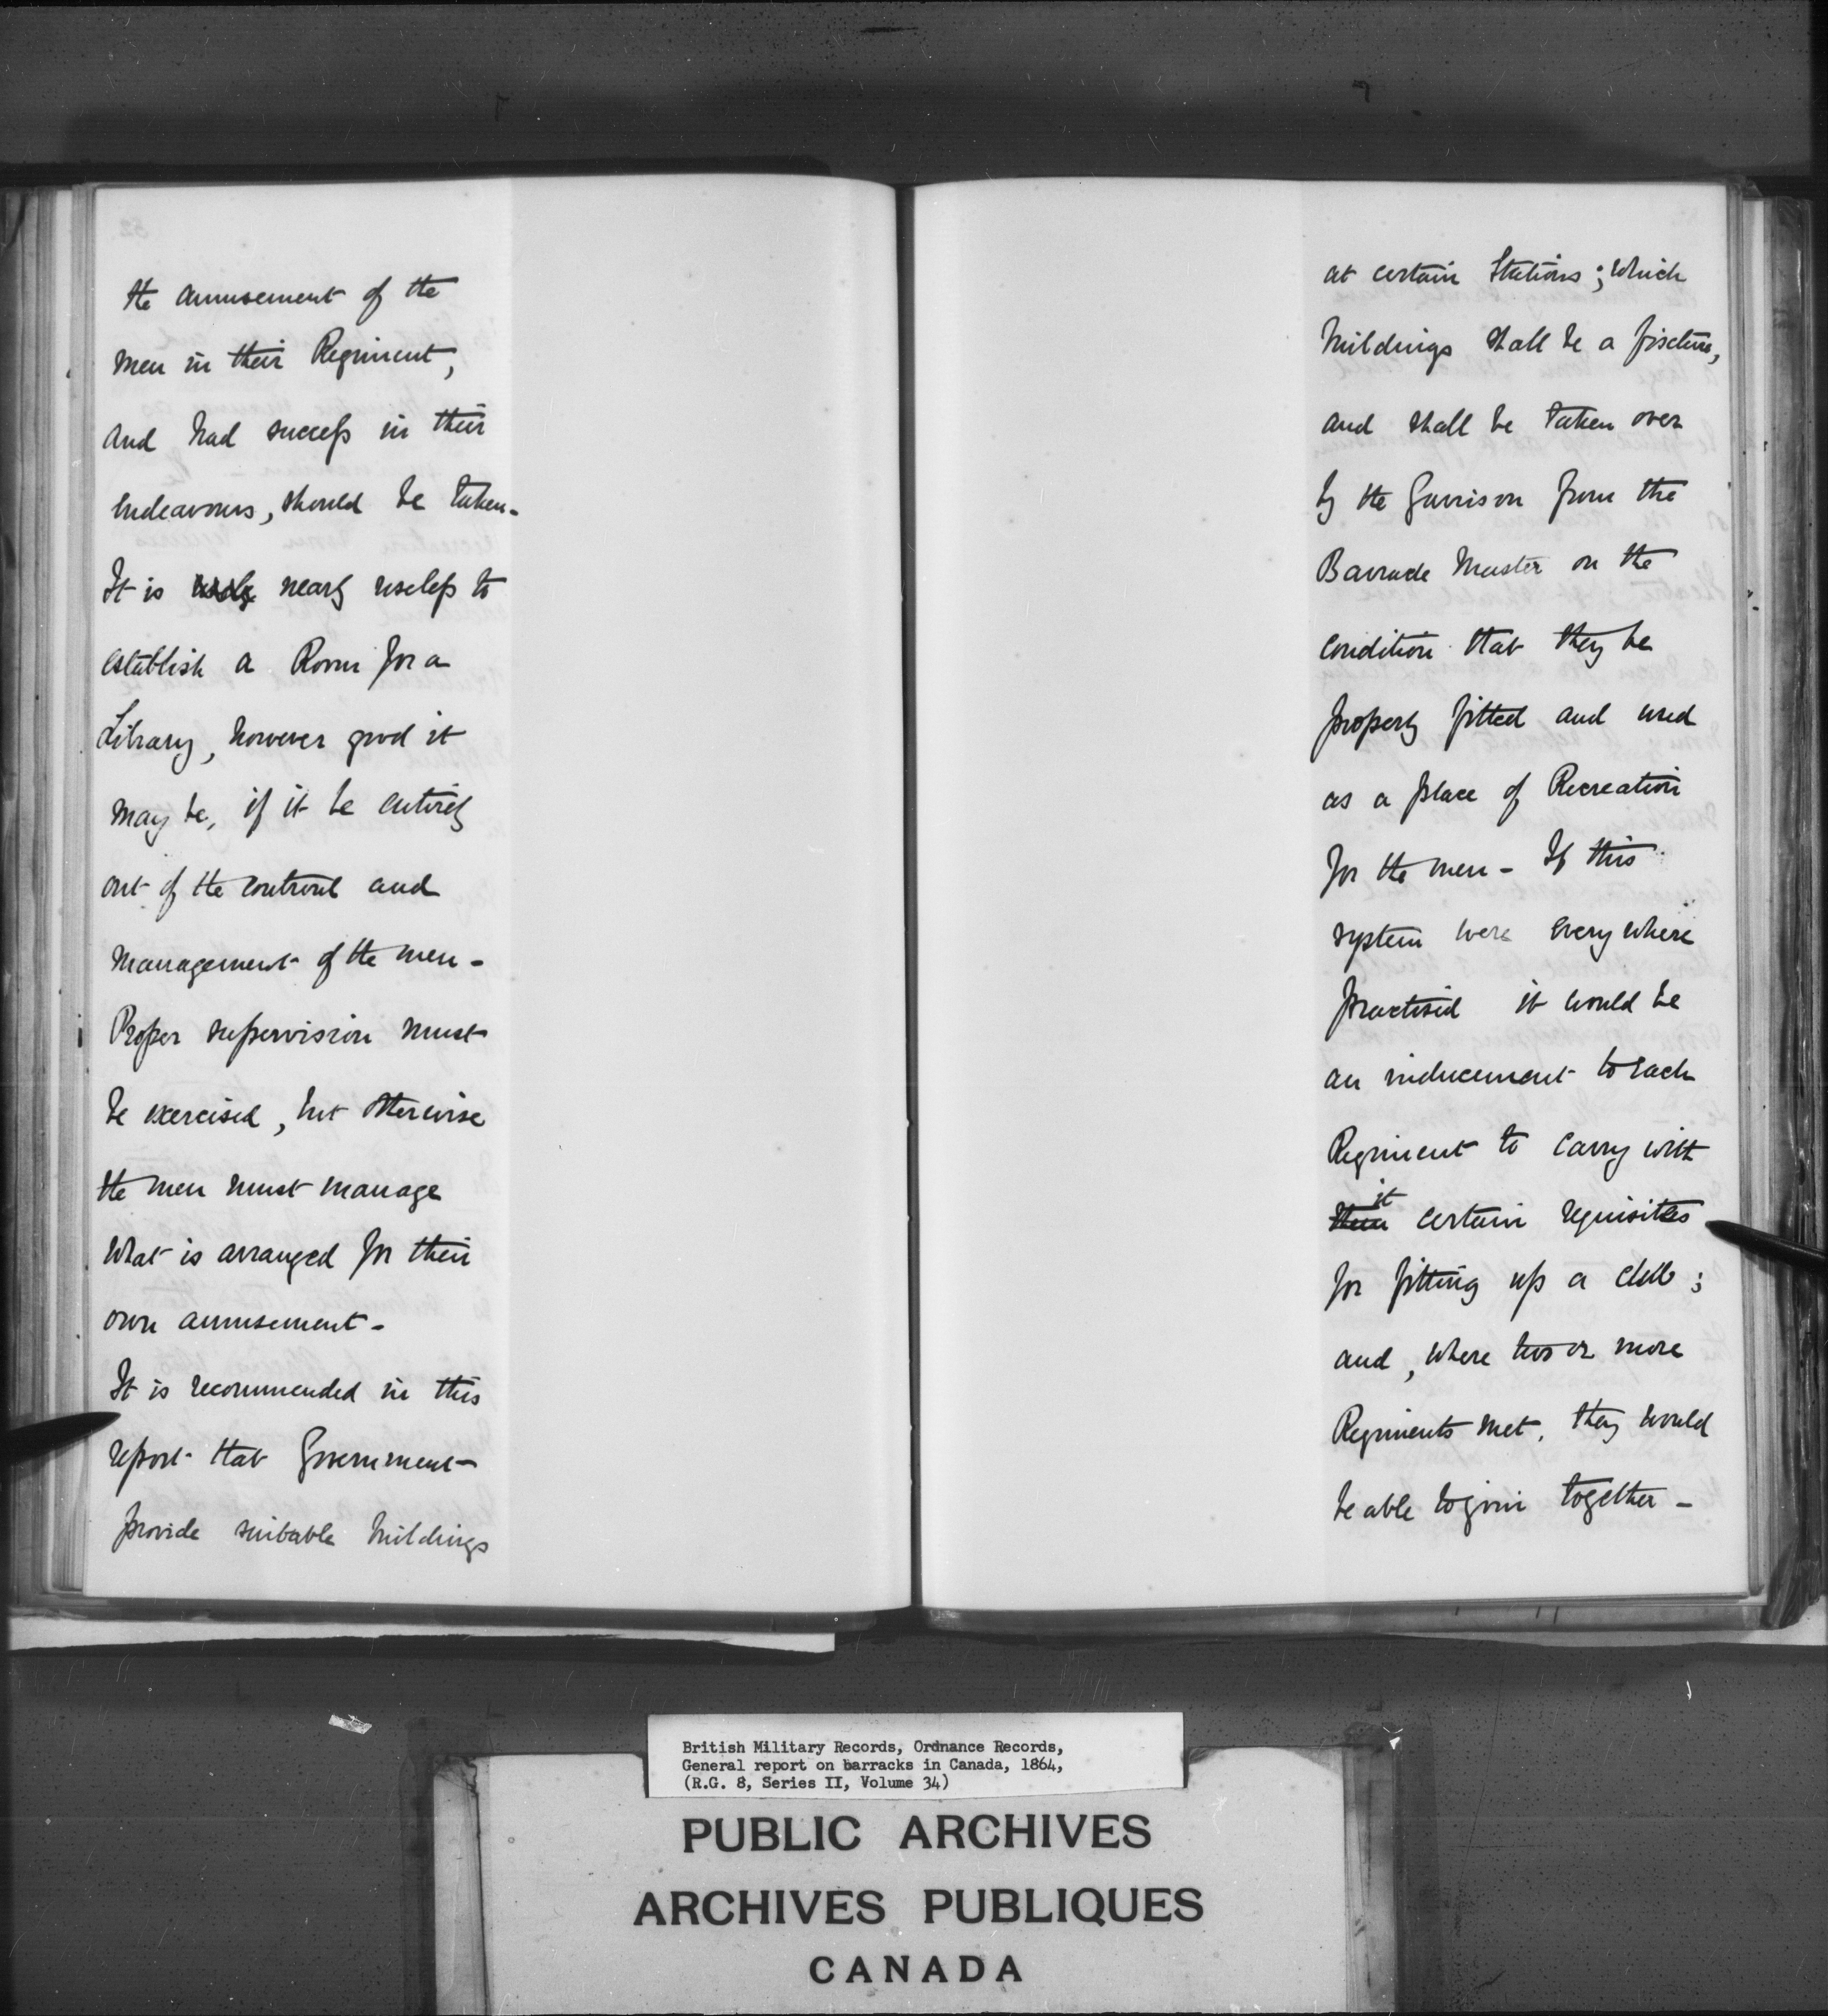 the amusement of the
men in their Regiment,
and had success in their
endeavours, should be taken -
It is nearly useless to
establish a Room for a
Library, however good it
may be, if it be entirely
out of the controul and
management of the men -
Proper supervision must
be exercised, but otherwise
the men must manage
what is arranged for their
own amusement -
It is recommended in this
report that Government
provide suitable buildings
at certain Stations; which
buildings shall be a fixture,
and shall be taken over
by the Garrison from the
Barrack Master on the
condition that they be
properly fitted and used
as a place of Recreation
for the men - If this
system were every where
practised it would be
an inducement to each
Regiment to carry with
it
them certain requisites
for fitting up a club;
and, where two or more
Regiments met, they would
be able to join together -
British Military Records, Ordnance Records,
General report on barracks in Canada, 1864,
(R.G. 8, Series II, Volume 34)
PUBLIC ARCHIVES
ARCHIVES PUBLIQUES
CANADA